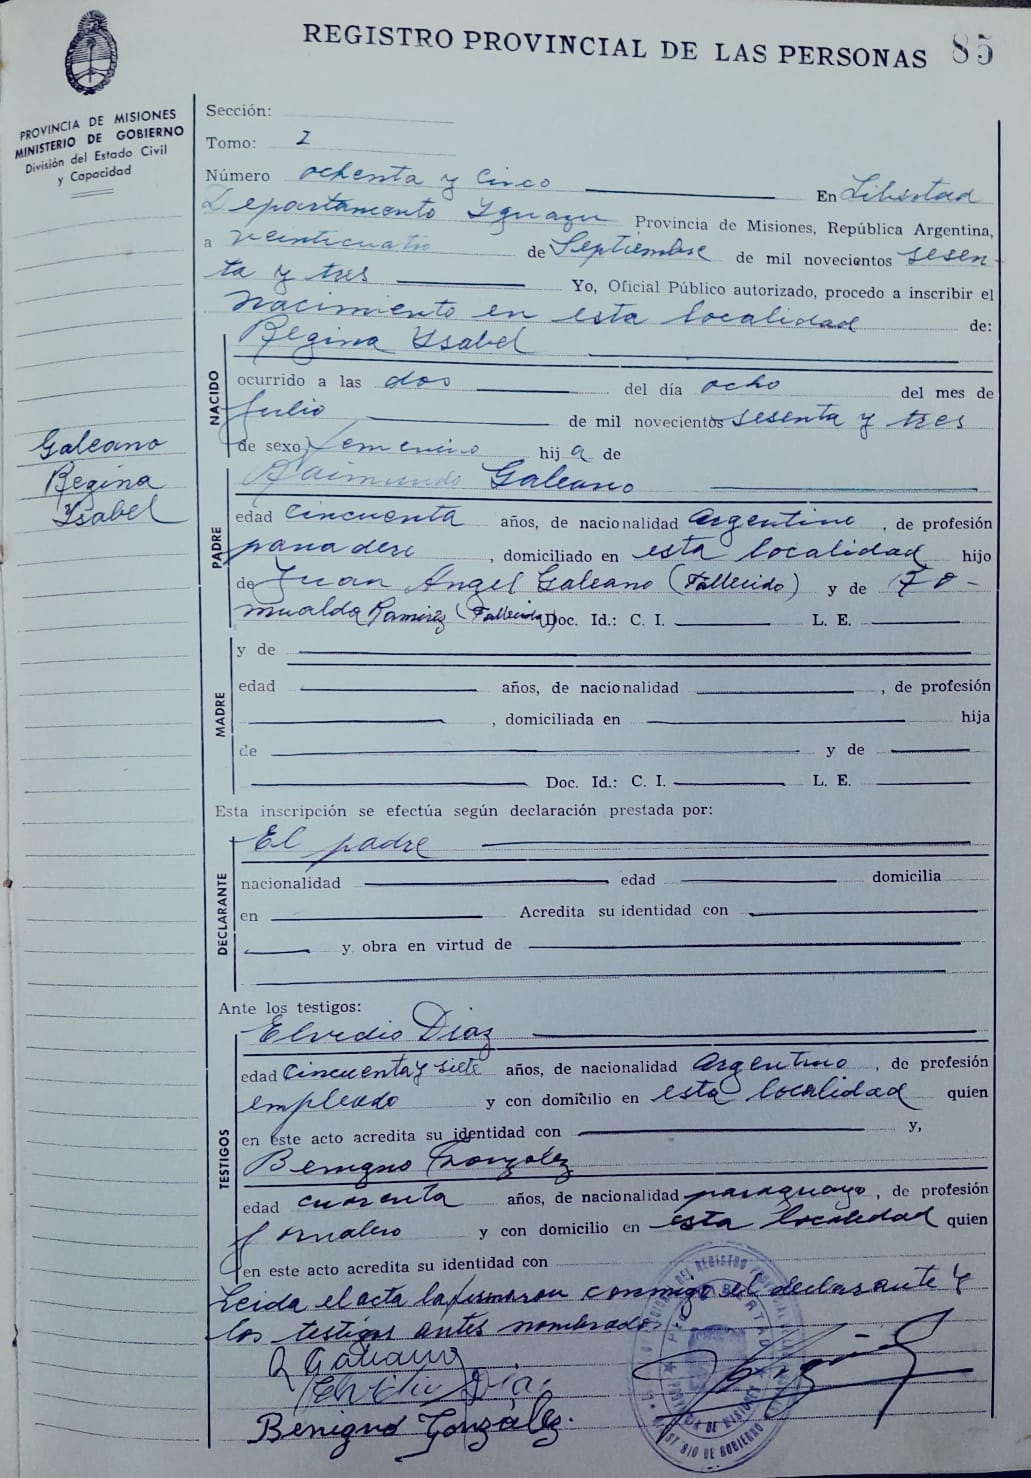 REGISTRO PROVINCIAL DE LAS PERSONAS 85
PROVINCIA DE MISIONES
MINISTERIO DE GOBIERNO
División del Estado Civil
y Capacidad
Sección:
Tomo: I
Número ochenta y cinco En Libertad
Departamento Yguazu Provincia de Misiones, República Argentina,
a veinticuatro de Septiembre de mil novecientos sesen-
ta y tres Yo, Oficial Público autorizado, procedo a inscribir el
nacimiento en esta localidad de:
Regina Ysabel
NACIDO
ocurrido a las dos del día ocho del mes de
Julio de mil novecientos sesenta y tres
de sexo femenino hij a de
Galeano
Regina
Ysabel
Raimundo Galeano
PADRE
edad cincuenta años, de nacionalidad Argentino, de profesión
panadero, domiciliado en esta localidad hijo
de Juan Angel Galeano (Fallecido) y de Ro-
mualda Ramirez (Fallecida) Doc. Id.: C. I. L. E.
MADRE
y de
edad años, de nacionalidad , de profesión
, domiciliada en hija
de y de
Doc. Id.: C. I. L. E.
Esta inscripción se efectúa según declaración prestada por:
DECLARANTE
El padre
nacionalidad edad domicilia
en Acredita su identidad con
y obra en virtud de
Ante los testigos:
TESTIGOS
Elvidio Diaz
edad cincuenta y siete años, de nacionalidad Argentino, de profesión
empleado y con domicilio en esta localidad quien
en este acto acredita su identidad con y,
Benigno Gonzalez
edad cuarenta años, de nacionalidad paraguayo, de profesión
Jornalero y con domicilio en esta localidad quien
en este acto acredita su identidad con
Leida el acta la firmaron conmigo el declarante y
los testigos antes nombrados
R Galeano
Elvidio Diaz
Benigno González.
LIBERTAD
PROVINCIA DE MISIONES